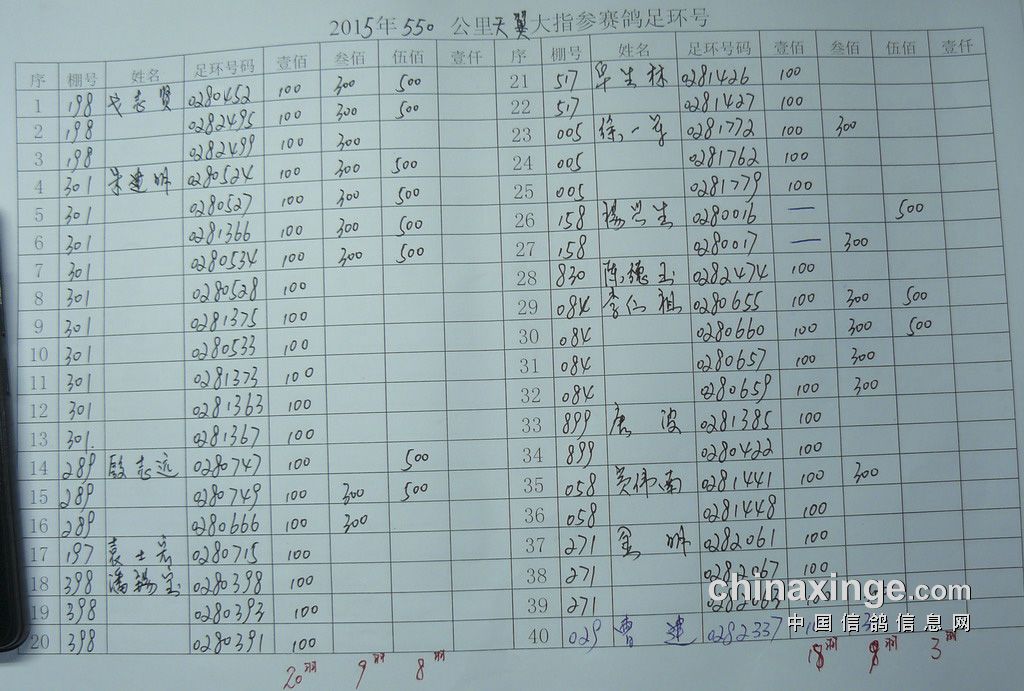 2015年550公里天翼大指参赛鸽足环号
序 棚号 姓名 足环号码 壹佰 叁佰 伍佰 壹仟
1 198 志贤 0280452 100 300 500
2 198 0282495 100 300 500
3 198 0282499 100 300
4 301 朱建明 0280524 100 300 500
5 301 0280527 100 300 500
6 301 0281366 100 300 500
7 301 0280534 100 300 500
8 301 0280528 100
9 301 0281375 100
10 301 0280533 100
11 301 0281373 100
12 301 0281363 100
13 301 0281367 100
14 289 殷志远 0280747 100 500
15 289 0280749 100 300 500
16 289 0280666 100 300
17 197 袁士 0280715 100
18 398 潘锡 0280398 100
19 398 0280393 100
20 398 0280391 100
20羽 9羽 8羽
序 棚号 姓名 足环号码 壹佰 叁佰 伍佰 壹仟
21 517 华生林 0281426 100
22 517 0281427 100
23 005 徐一 0281772 100 300
24 005 0281762 100
25 005 0281779 100
26 158 杨兴生 0280016 — 500
27 158 0280017 — 300
28 830 陈德玉 0282474 100
29 084 李仁祖 0280655 100 300 500
30 084 0280660 100 300 500
31 084 0280657 100 300
32 084 0280659 100 300
33 899 唐波 0281385 100
34 899 0280422 100
35 058 吴伟南 0281441 100 300
36 058 0281448 100
37 271 金明 0282061 100
38 271 0282067 100
39 271 0282063
40 029 曹建 0282337
18羽 羽 3羽
chinaxinge.com
中国信鸽信息网